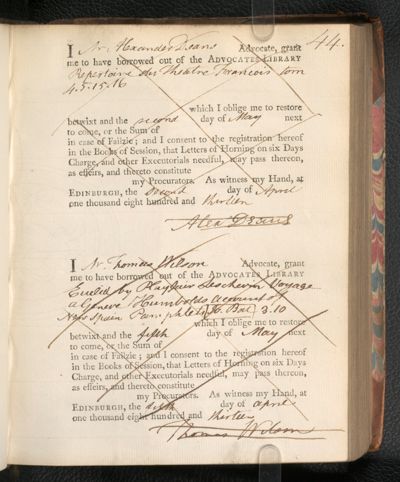 44.
I Mr Alexander Deans Advocate, grant
me to have borrowed out of the ADVOCATES LIBRARY
Repertoire du Theatre Francois tom
4.5.15.16
which I oblige me to restore
betwixt and the second day of May next
to come, or the Sum of
in case of Failzie; and I consent to the registration hereof
in the Books of Session, that Letters of Horning on six Days
Charge, and other Executorials needful, may pass thereon,
as effeirs, and thereto constitute
my Procurators. As witness my Hand, at
EDINBURGH, the second day of April
one thousand eight hundred and thirteen
Alex Deans
I Mr Thomas Wilson Advocate, grant
me to have borrowed out of the ADVOCATES LIBRARY
Euclid by Playfair Leschevin Voyage
a Geneve Humboldts account of
New Spain Pamphlets 3.10
which I oblige me to restore
betwixt and the fifth day of May next
to come, or the Sum of
in case of Failzie; and I consent to the registration hereof
in the Books of Session, that Letters of Horning on six Days
Charge, and other Executorials needful, may pass thereon,
as effeirs, and thereto constitute
my Procurators. As witness my Hand, at
EDINBURGH, the fifth day of April
one thousand eight hundred and thirteen
Thomas Wilson